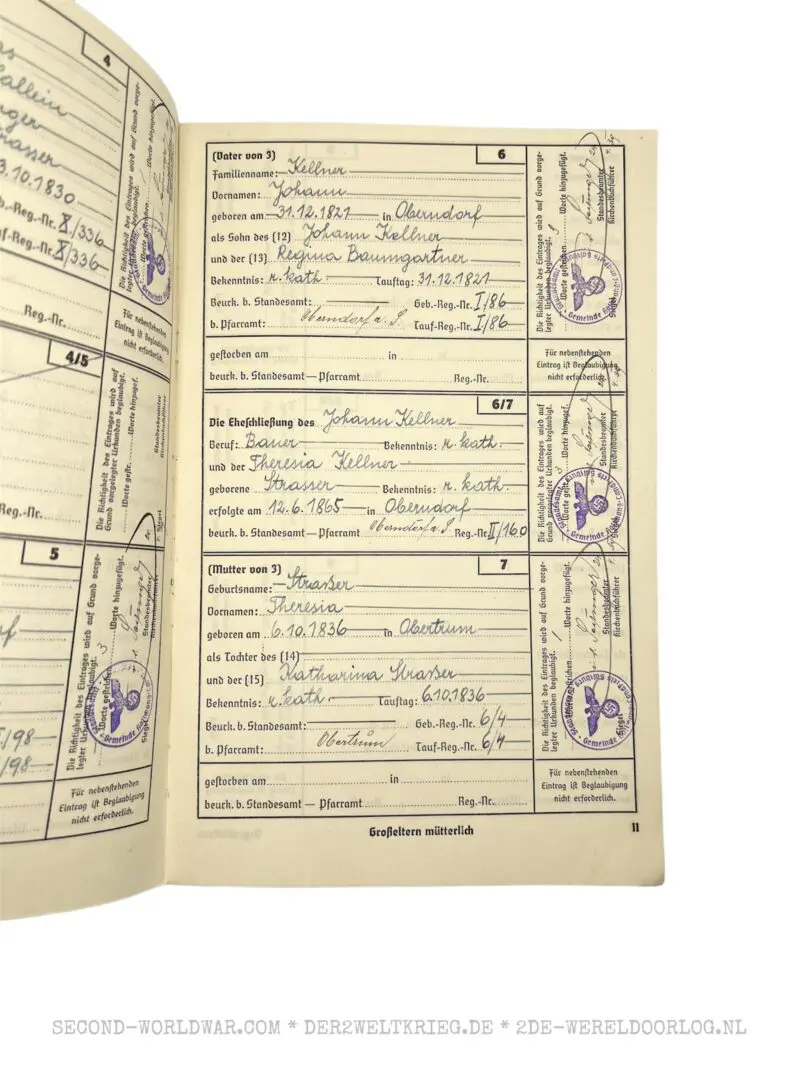 4
allein
3.10.1830
b.-Reg.-Nr. X/336
uf-Reg.-Nr. X/336
Reg.-Nr.
Die Richtigkeit des Eintrages wird auf Grund vorge-
legter Urkunden beglaubigt.
Für nebenstehenden
Eintrag ist Beglaubigung
nicht erforderlich.
4/5
Die Richtigkeit des Eintrages wird auf
Grund vorgelegter Urkunden beglaubigt.
Reg.-Nr.
5
I/98
I/98
Die Richtigkeit des Eintrages wird auf Grund vorge-
legter Urkunden beglaubigt.
Für nebenstehenden
Eintrag ist Beglaubigung
nicht erforderlich.
(Vater von 3) 6
Familienname: Kellner
Vornamen: Johann
geboren am 31.12.1821 in Oberndorf
als Sohn des (12) Johann Kellner
und der (13) Regina Baumgartner
Bekenntnis: r. kath Tauftag: 31.12.1821
Beurk. b. Standesamt: Geb.-Reg.-Nr. I/86
b. Pfarramt: Oberndorf a. S. Tauf-Reg.-Nr. I/86
Die Richtigkeit des Eintrages wird auf Grund vorge-
legter Urkunden beglaubigt.
Worte gestrichen Worte hinzugefügt.
Standesbeamter
Kirchenbuchführer
Siegel
gestorben am in
beurk. b. Standesamt — Pfarramt Reg.-Nr.
Für nebenstehenden
Eintrag ist Beglaubigung
nicht erforderlich.
6/7
Die Eheschließung des Johann Kellner
Beruf: Bauer Bekenntnis: r. kath
und der Theresia Kellner
geborene Strasser Bekenntnis: r. kath.
erfolgte am 12.6.1865 in Oberndorf
beurk. b. Standesamt — Pfarramt Oberndorf a. S. Reg.-Nr. II/160
Die Richtigkeit des Eintrages wird auf
Grund vorgelegter Urkunden beglaubigt.
Worte gestr. Worte hinzugef.
Standesbeamter
Kirchenbuchführer
(Mutter von 3) 7
Geburtsname: Straßer
Vornamen: Theresia
geboren am 6.10.1836 in Obertrum
als Tochter des (14)
und der (15) Katharina Straßer
Bekenntnis: r. kath Tauftag: 6.10.1836
Beurk. b. Standesamt: Geb.-Reg.-Nr. 6/4
b. Pfarramt: Obertrum Tauf-Reg.-Nr. 6/4
Die Richtigkeit des Eintrages wird auf Grund vorge-
legter Urkunden beglaubigt.
Worte gestrichen Worte hinzugefügt.
Standesbeamter
Kirchenbuchführer
Siegel
gestorben am in
beurk. b. Standesamt — Pfarramt Reg.-Nr.
Für nebenstehenden
Eintrag ist Beglaubigung
nicht erforderlich.
Großeltern mütterlich 11
SECOND-WORLDWAR.COM * DER2WELTKRIEG.DE * 2DE-WERELDOORLOG.NL